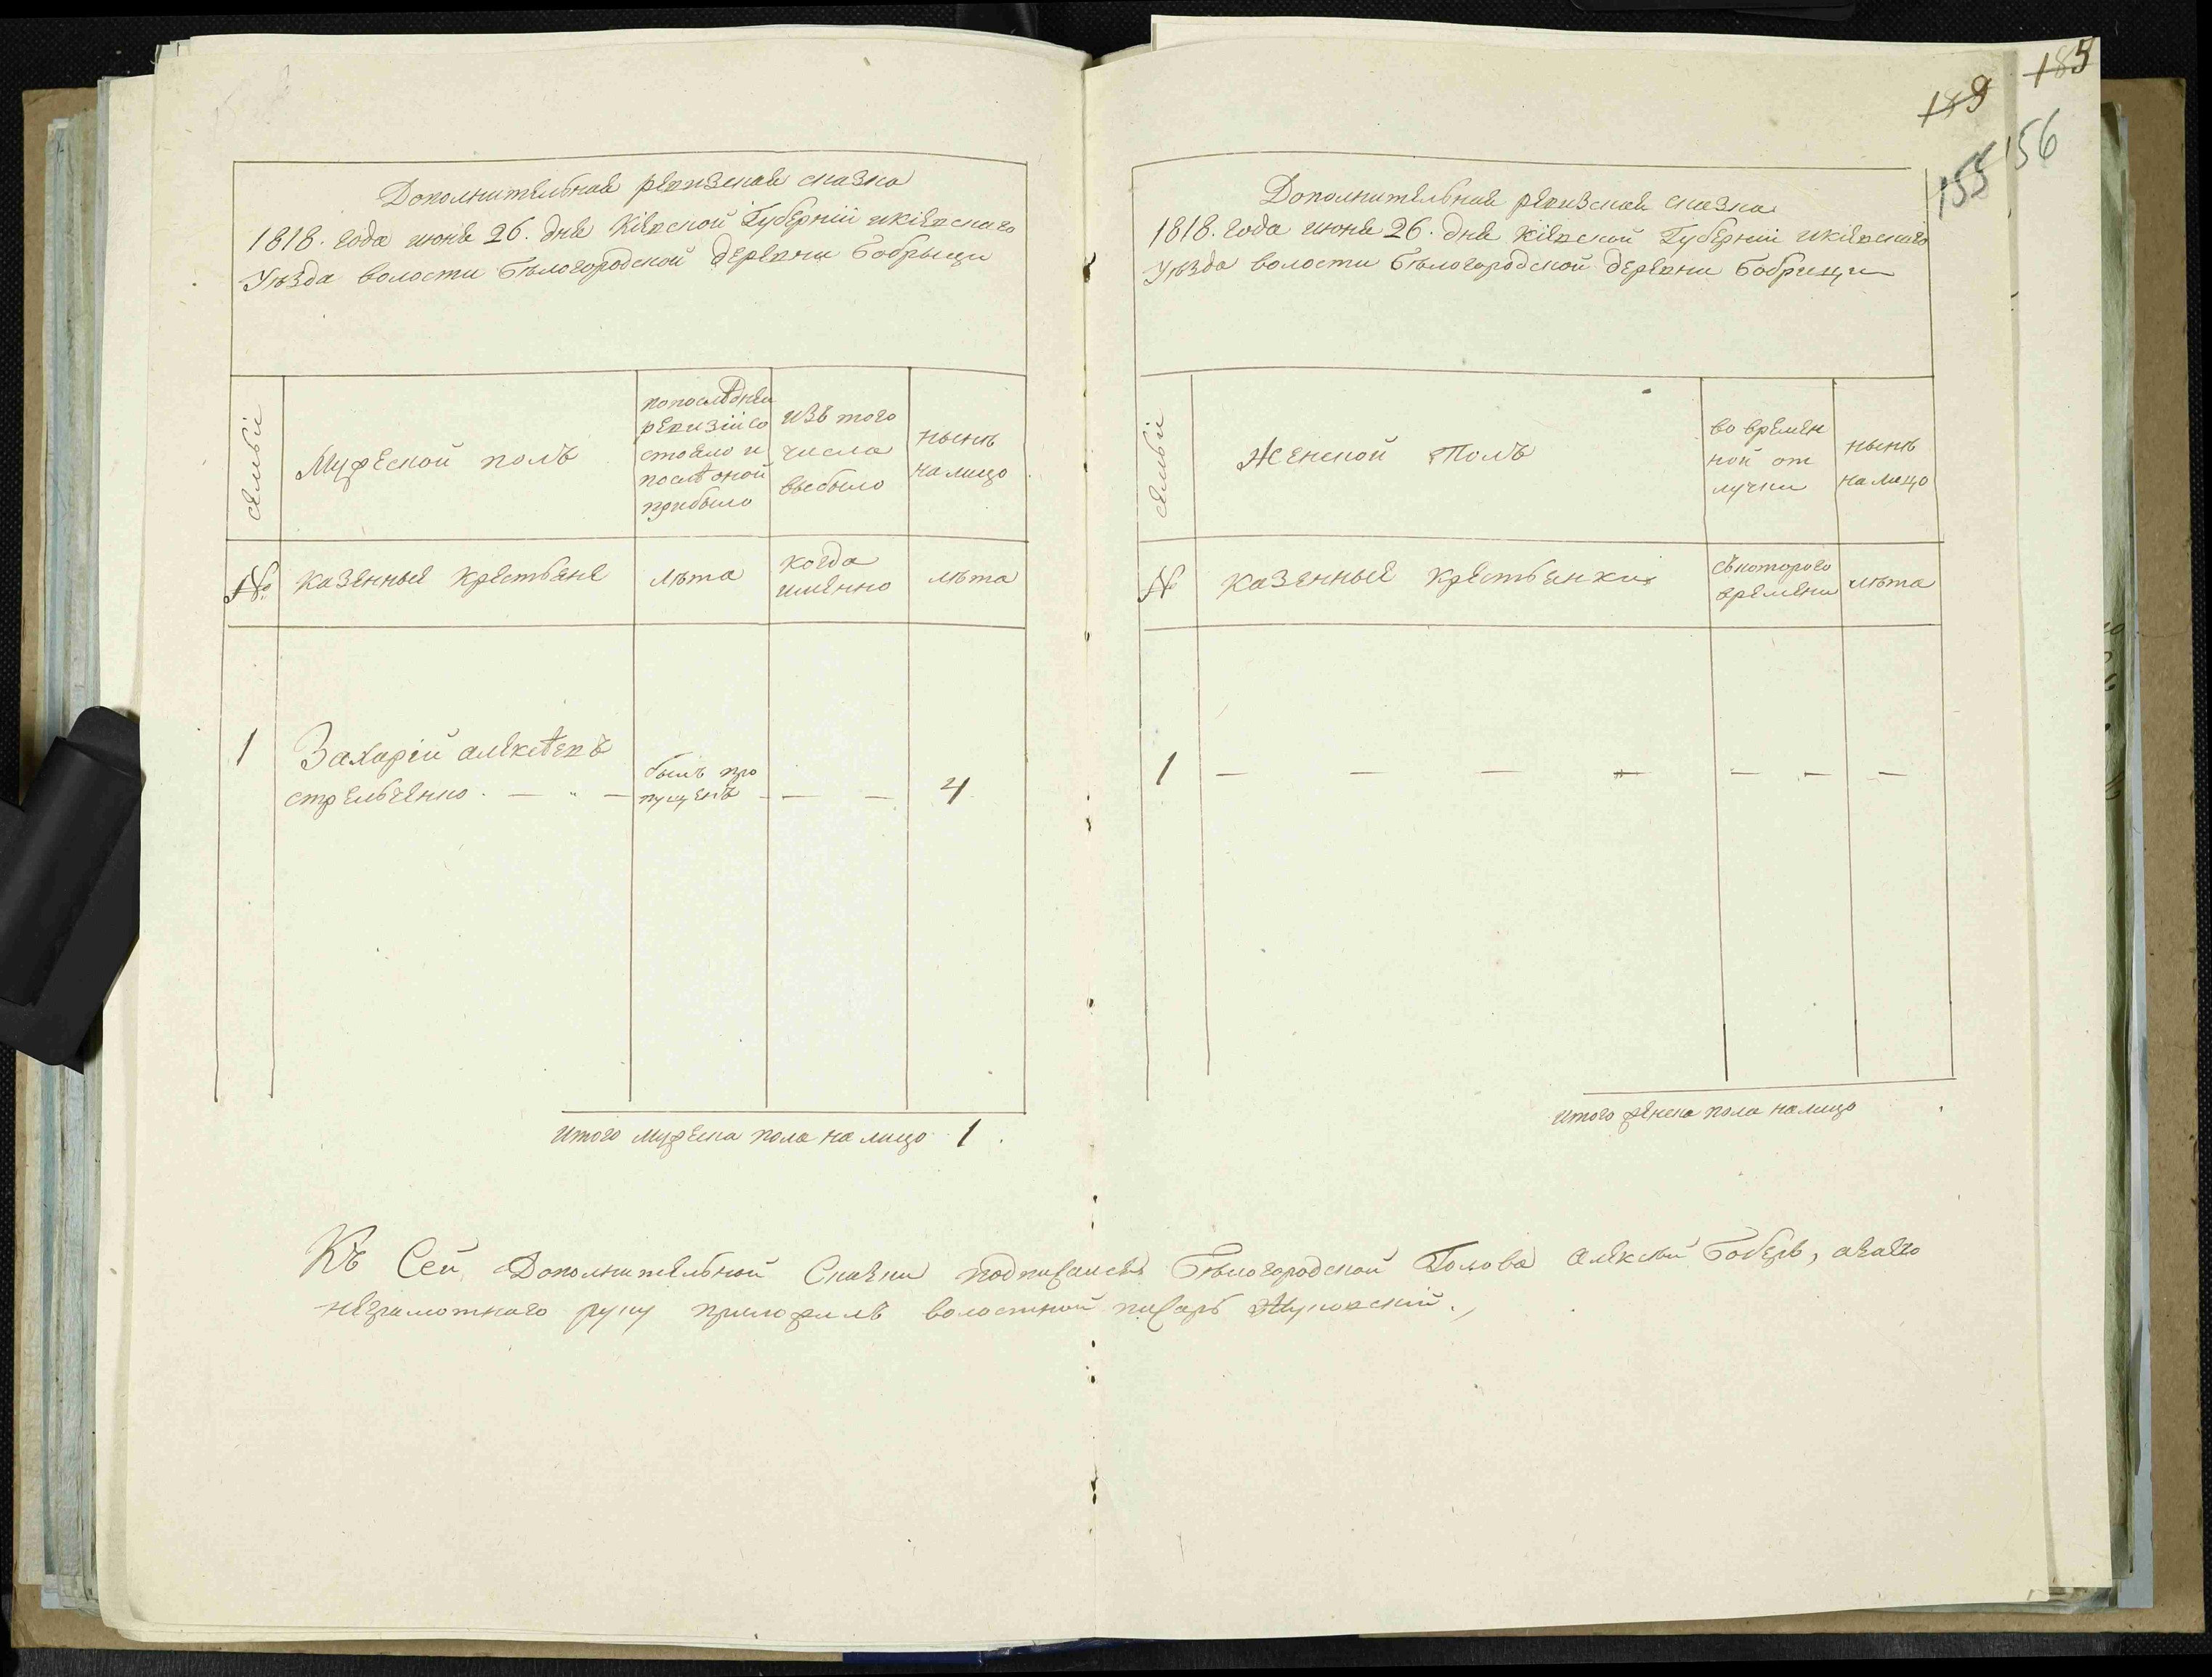 Дополнительная ревизская сказка
1818. года июня 26. дня Кіевской Губерніи икіевскаго
Уѣзда волости Бѣлогородской деревни Бобрыци
семьи
Мужеской полъ
попослѣдней
ревизіи со
стояло и
послѣ оной
прибыло
изъ того
числа
выбыло
нынѣ
налицо
№
казенные крестьяне
лѣта
когда
именно
лѣта
1
Захарій алексѣевъ
стрельченко. — " —
былъ про
пущенъ
— —
4
Итого мужеска пола налицо 1.
189
185
155
156
Дополнительная ревизская сказка
1818. года июня 26. дня Кіевской Губерніи икіевскаго
Уѣзда волости Бѣлогородской деревни Бобрици
семьи
Женской Полъ
во времен
ной от
лучки
нынѣ
налицо
№
казенные крестьянки
съкотораго
времени
лѣта
1 — — — — — — —
итого женска пола налицо
Къ Сей Дополнительной Сказки подписался Бѣлогородской Голова алексѣй Боберъ, аваего
неграмотнаго руку приложилъ волостной писарь Жуковскій.